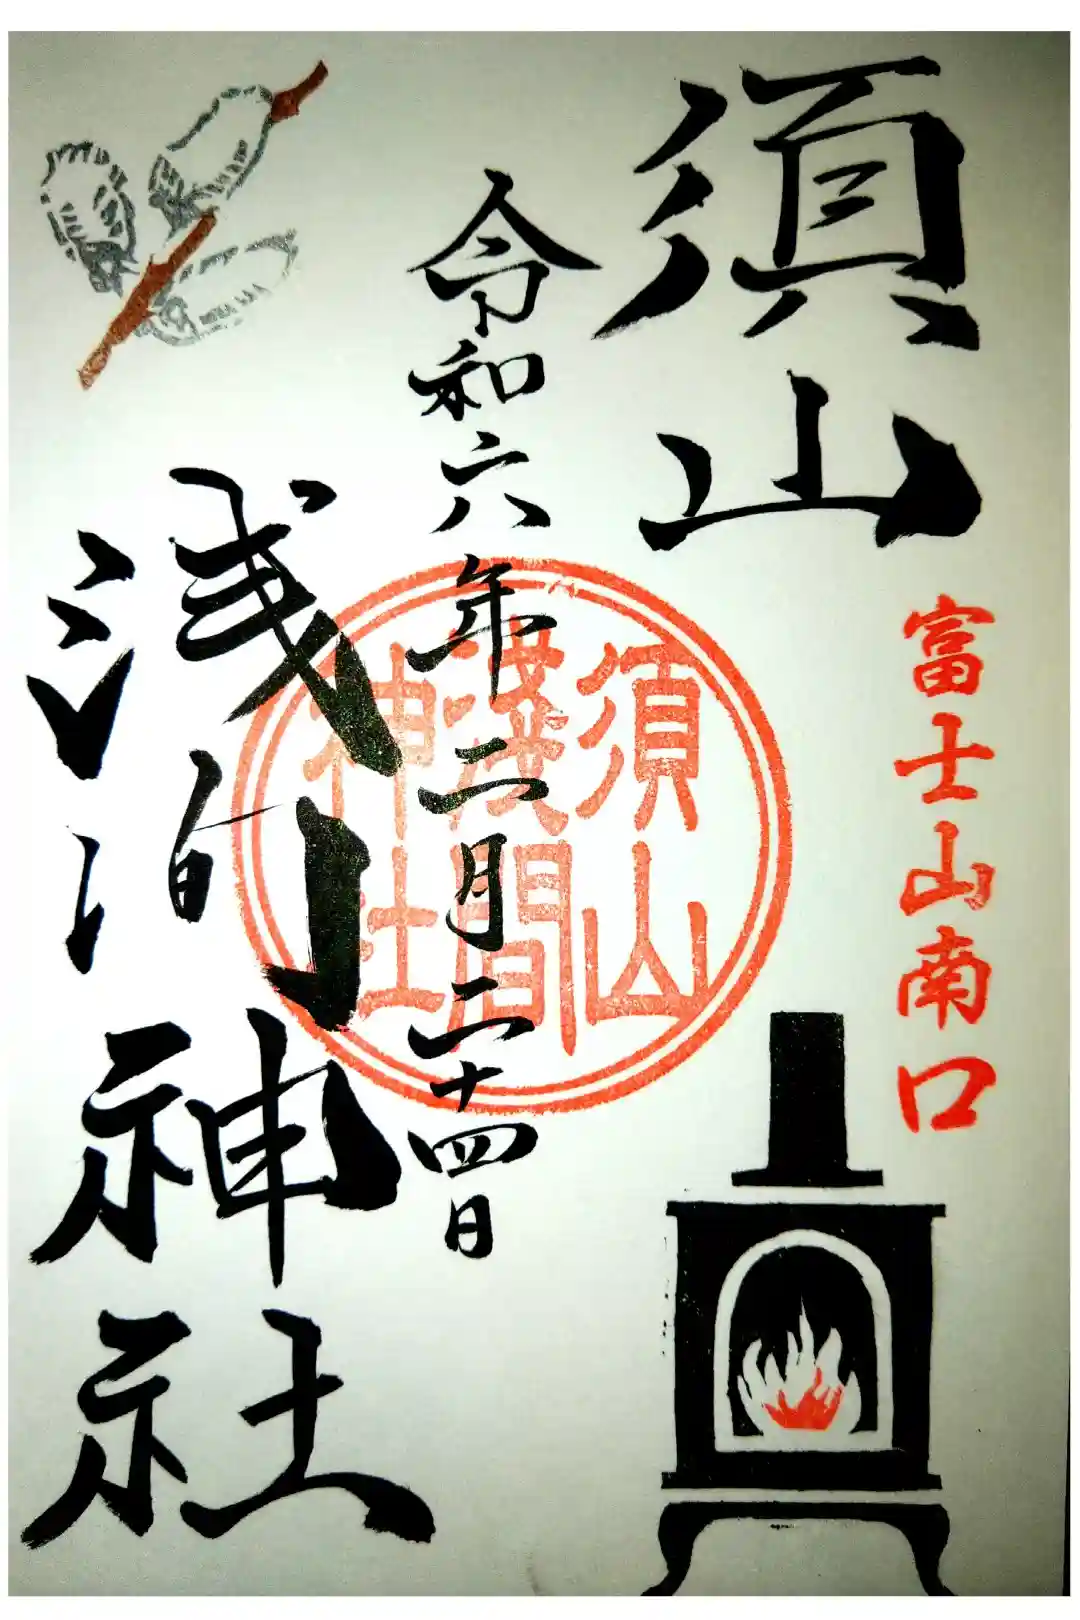 須山
富士山南口
令和六年二月二十四日
浅间神社
須山
淺間
神社